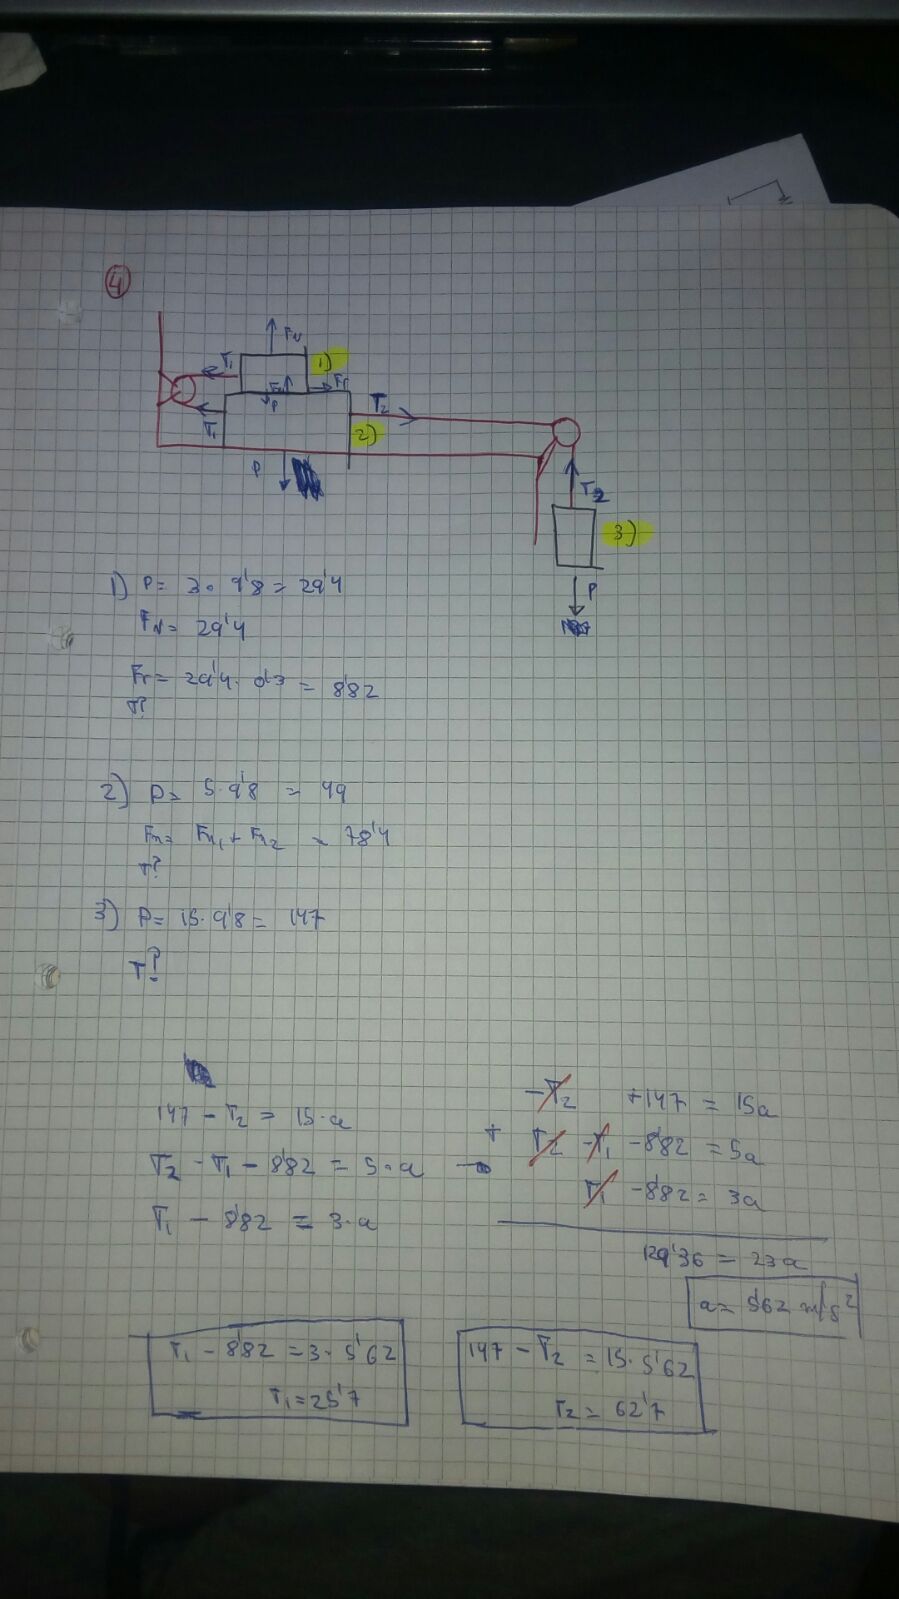 4
FN
T1
1)
Fr
FN
P
T2
T1
2)
P
T2
3)
P
1) P = 3 · 9'8 = 29'4
FN = 29'4
Fr = 29'4 · 0'3 = 8'82
T?
2) P = 5 · 9'8 = 49
Fn = Fn1 + Fn2 = 78'4
T?
3) P = 15 · 9'8 = 147
T?
147 - T2 = 15 · a
T2 - T1 - 8'82 = 5 · a →
T1 - 8'82 = 3 · a
-T2 +147 = 15a
+ T2 - T1 - 8'82 = 5a
T1 - 8'82 = 3a
129'36 = 23a
a = 5'62 m/s²
T1 - 8'82 = 3 · 5'62
T1 = 25'7
147 - T2 = 15 · 5'62
T2 = 62'7